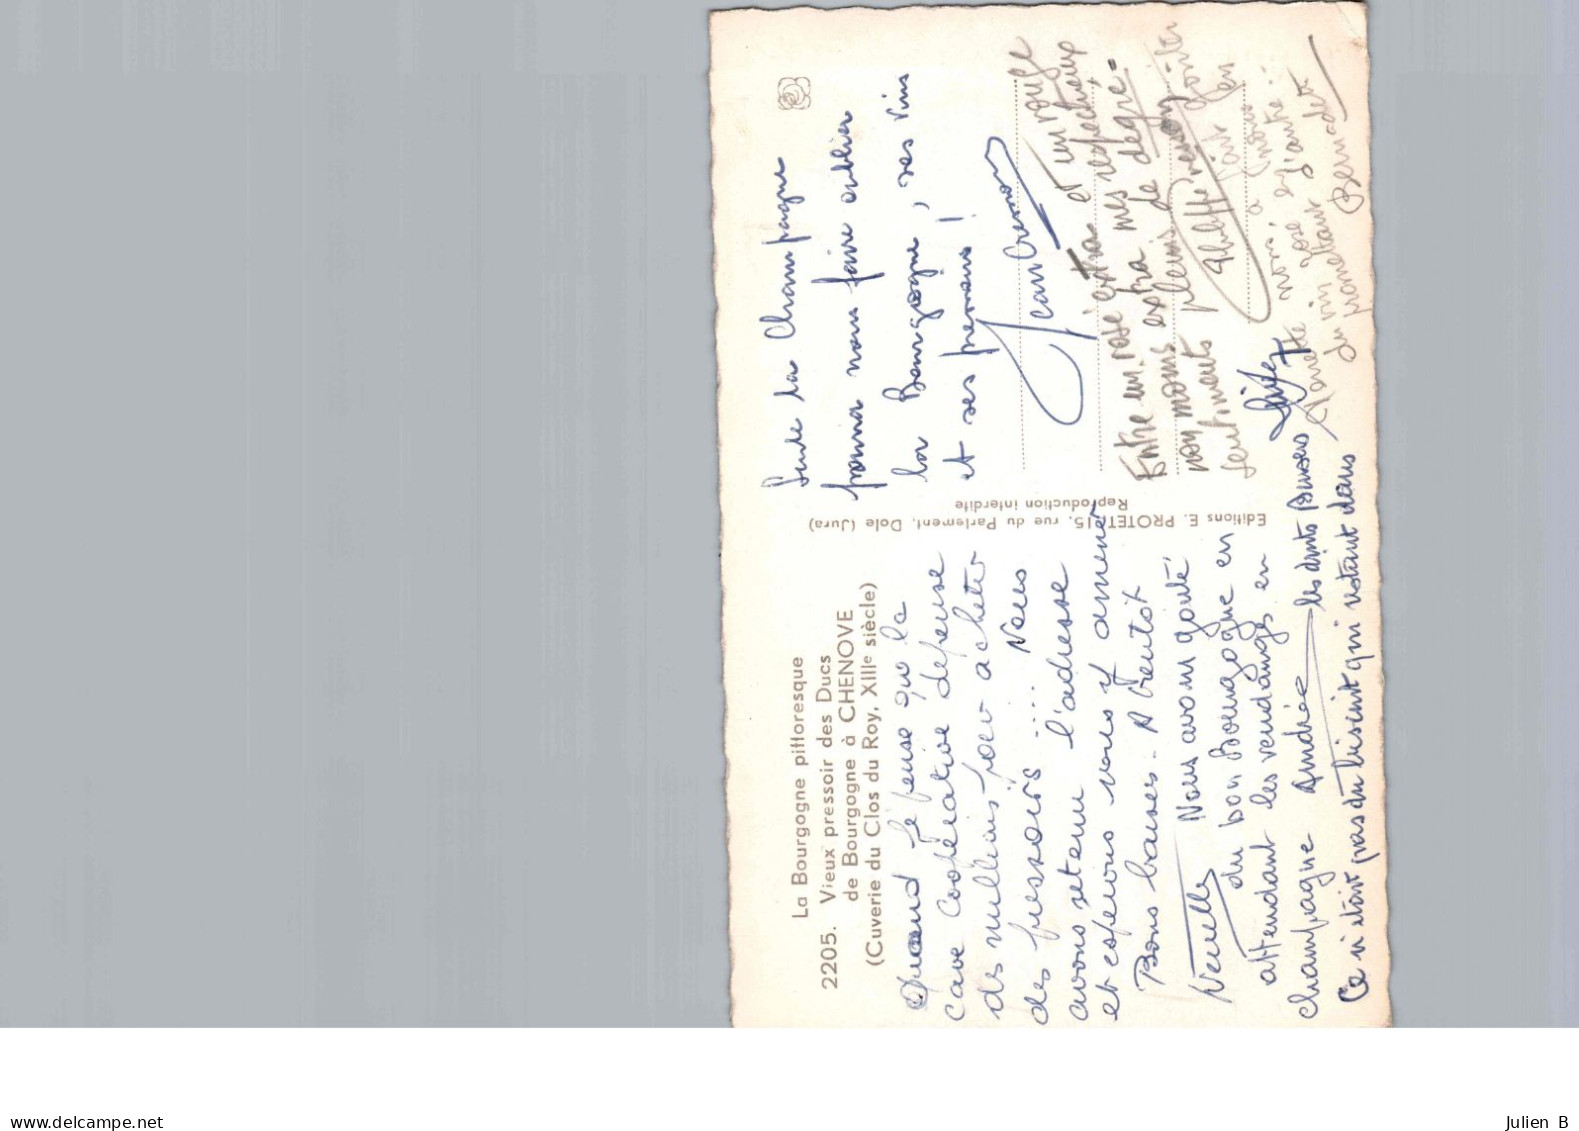 La Bourgogne pittoresque
2205. Vieux pressoir des Ducs
de Bourgogne à CHENOVE
(Cuverie du Clos du Roy, XIIIe siècle)
Quand je pense que la
cave coopérative dépense
des millions pour acheter
des pressoirs .... Nous
avons retenu l'adresse
et espérons vous y amener
Bons baisers. A bientôt
Nous avons goûté
du bon Bourgogne en
attendant les vendanges en
champagne Andrée
Ce n'était pas du
Editions E. PROTET, 15, rue du Parlement, Dole (Jura)
Reproduction interdite
Seule la Champagne
pourra nous faire oublier
la Bourgogne, ses vins
et ses pressoirs !
Jean
Entre un rosé extra et un rouge
non moins extra mes respectueux
sentiments pleins de degré.
du vin rosé d'autre
Bernadette
www.delcampe.net
Julien B